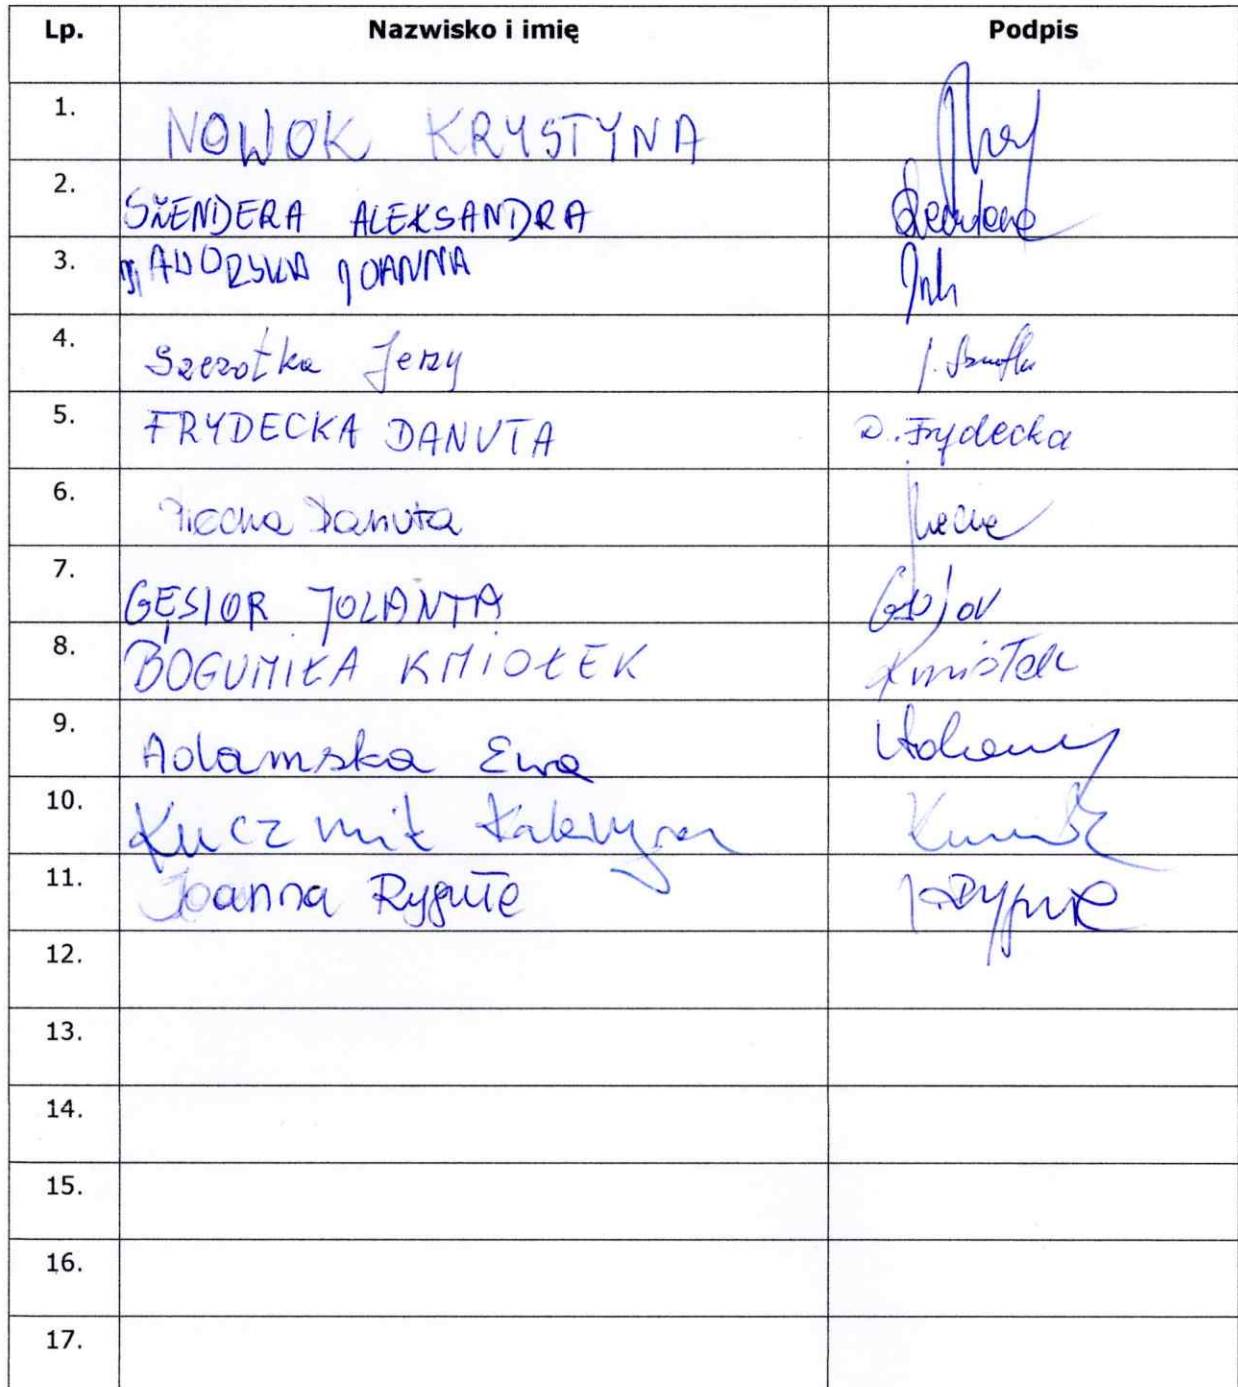 Lp. Nazwisko i imię Podpis
1. NOWOK KRYSTYNA
2. ALEKSANDRA
3. JAWORSKA JOANNA
4. Szczotka Jerzy J. Szczotka
5. FRYDECKA DANUTA D. Frydecka
6. Piecha Danuta Piecha
7. GĘSIOR JOLANTA Gęsior
8. BOGUMIŁA KMIOŁEK Kmiołek
9. Adamska Ewa
10. Kuczmit Katarzyna
11. Joanna Ryguła
12.
13.
14.
15.
16.
17.